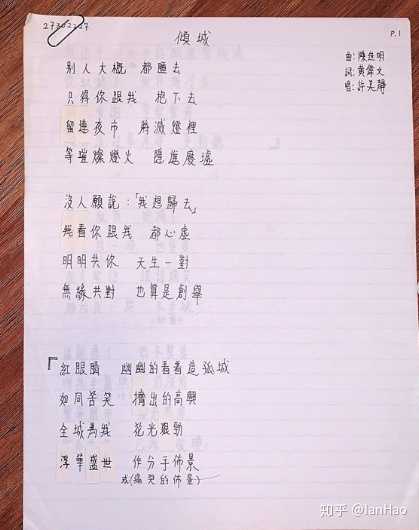 27302227
P.1
傾城
曲:陳佳明
詞:黃偉文
唱:許美靜
別人大概 都睡去
只得你跟我 抱下去
留戀夜市 將滅燈裡
等璀璨燈火 隱進廢墟
沒人願說:「我想歸去」
看你跟我 都心虛
明明共你 天生一對
無緣共對 也算是創舉
『紅眼睛 幽幽的看着這孤城
如同苦笑 擠出的高興
全城為我 花光狠勁
浮華盛世 作分手佈景
或(痛哭的佈景)
知乎 @IanHao